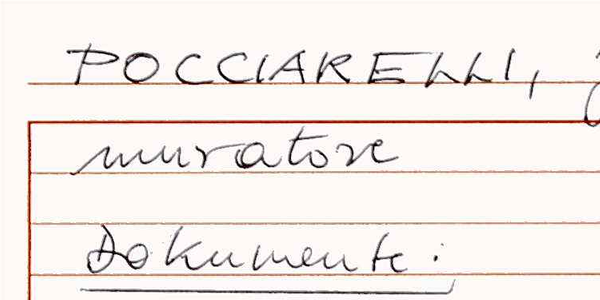 POCCIARELLI,
muratore
Dokumente: